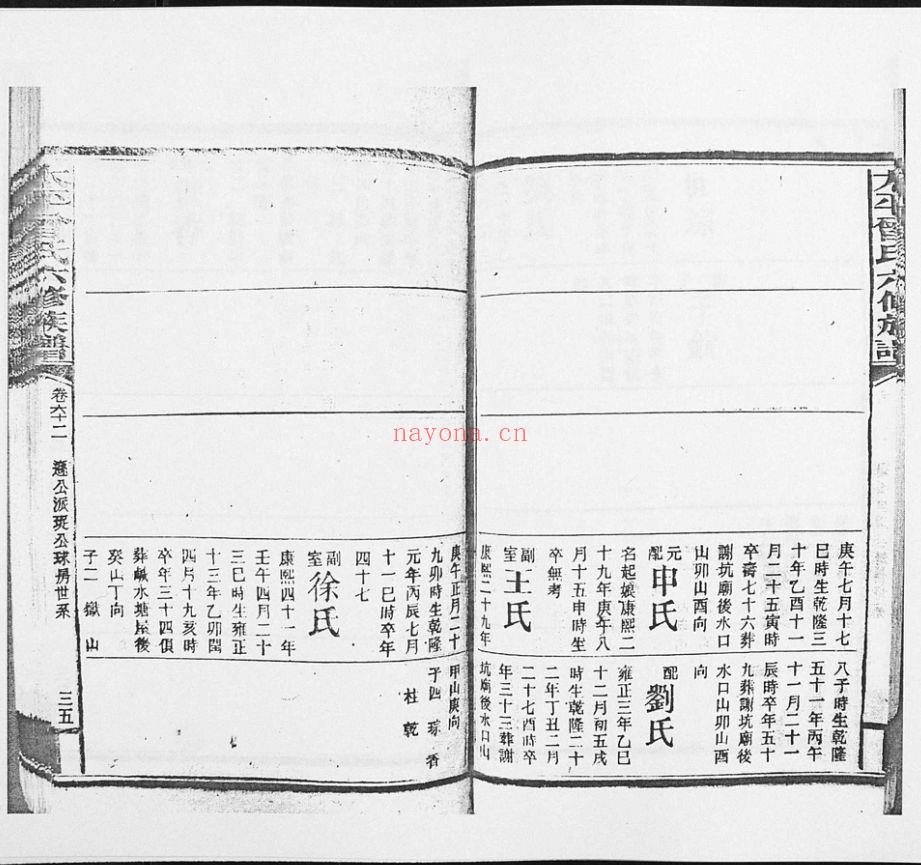 庚午七月十七
巳時生乾隆三
十年乙酉十一
月二十五寅時
卒壽七十六葬
謝坑廟後水口
山卯山酉向
元配申氏
名起娘康熙二
十九年庚午八
月十五申時生
卒無考
副室王氏
康熙二十九年
八子時生乾隆
五十一年丙午
十一月二十一
辰時卒年五十
九葬謝坑廟後
水口山卯山酉
向
配劉氏
雍正三年乙巳
十二月初五戌
時生乾隆二十
二年丁丑二月
二十七酉時卒
年三十三葬謝
坑廟後水口山
庚午正月二十
九卯時生乾隆
元年丙辰七月
十一巳時卒年
四十七
副室徐氏
康熙四十一年
壬午四月二十
三巳時生雍正
十三年乙卯閏
四月十九亥時
卒年三十四俱
葬鹹水塘屋後
癸山丁向
子二 嶽 山
甲山庚向
子四 琢 香
桂 乾
太平曾氏六修族譜
卷六十二
公派珽公球房世系
三五
nayona.cn